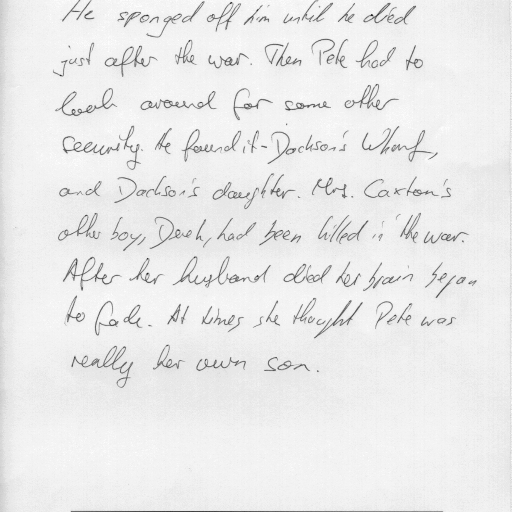 He sponged off him until he died
just after the war. Then Pete had to
look around for some other
security. He found it - Dackson's Wharf,
and Dackson's daughter. Mrs. Caxton's
other boy, Derek, had been killed in the war.
After her husband died her brain began
to fade. At times she thought Pete was
really her own son.